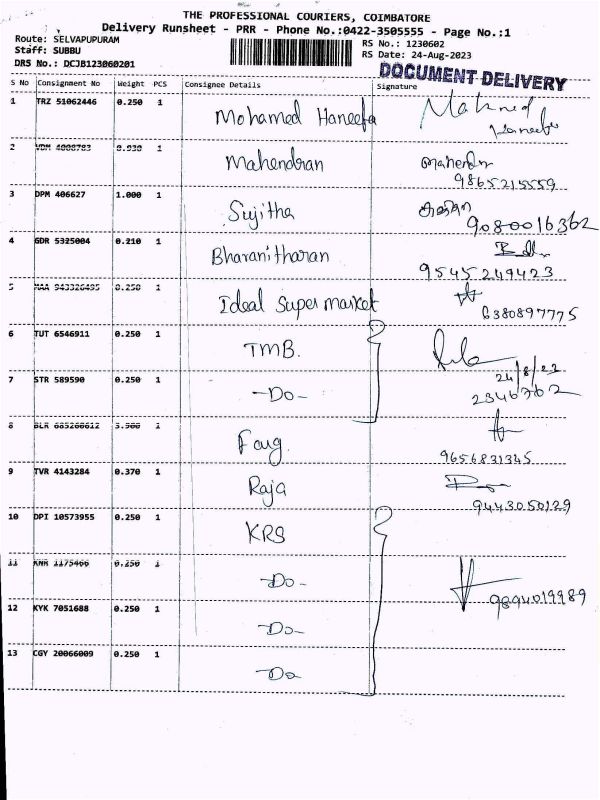 THE PROFESSIONAL COURIERS, COIMBATORE
Delivery Runsheet - PRR - Phone No.:0422-3505555 - Page No.:1
Route: SELVAPUPURAM
RS No.: 1230602
Staff: SUBBU
RS Date: 24-Aug-2023
DRS No.: DCJB123060201
DOCUMENT DELIVERY
S No Consignment No Weight PCS Consignee Details Signature
1 TRZ 51062446 0.250 1 Mohamed Haneefa
2 4008783 0.930 1 Mahendran
9865215559
3 DPM 406627 1.000 1 Sujitha
9080016362
4 GDR 5325004 0.210 1 Bharanitharan
9545249423
5 MAA 943326495 0.250 1 Ideal Super market
6380897775
6 TUT 6546911 0.250 1 TMB.
7 STR 589590 0.250 1 -Do-
24/8/23
2346762
8 BLR 685260612 3.500 1
9656831345
9 TVR 4143284 0.370 1 Raja
9443050129
10 DPI 10573955 0.250 1 KRS
11 KNR 1175466 0.250 1 -Do-
9894019989
12 KYK 7051688 0.250 1 -Do-
13 CGY 20066009 0.250 1 Do